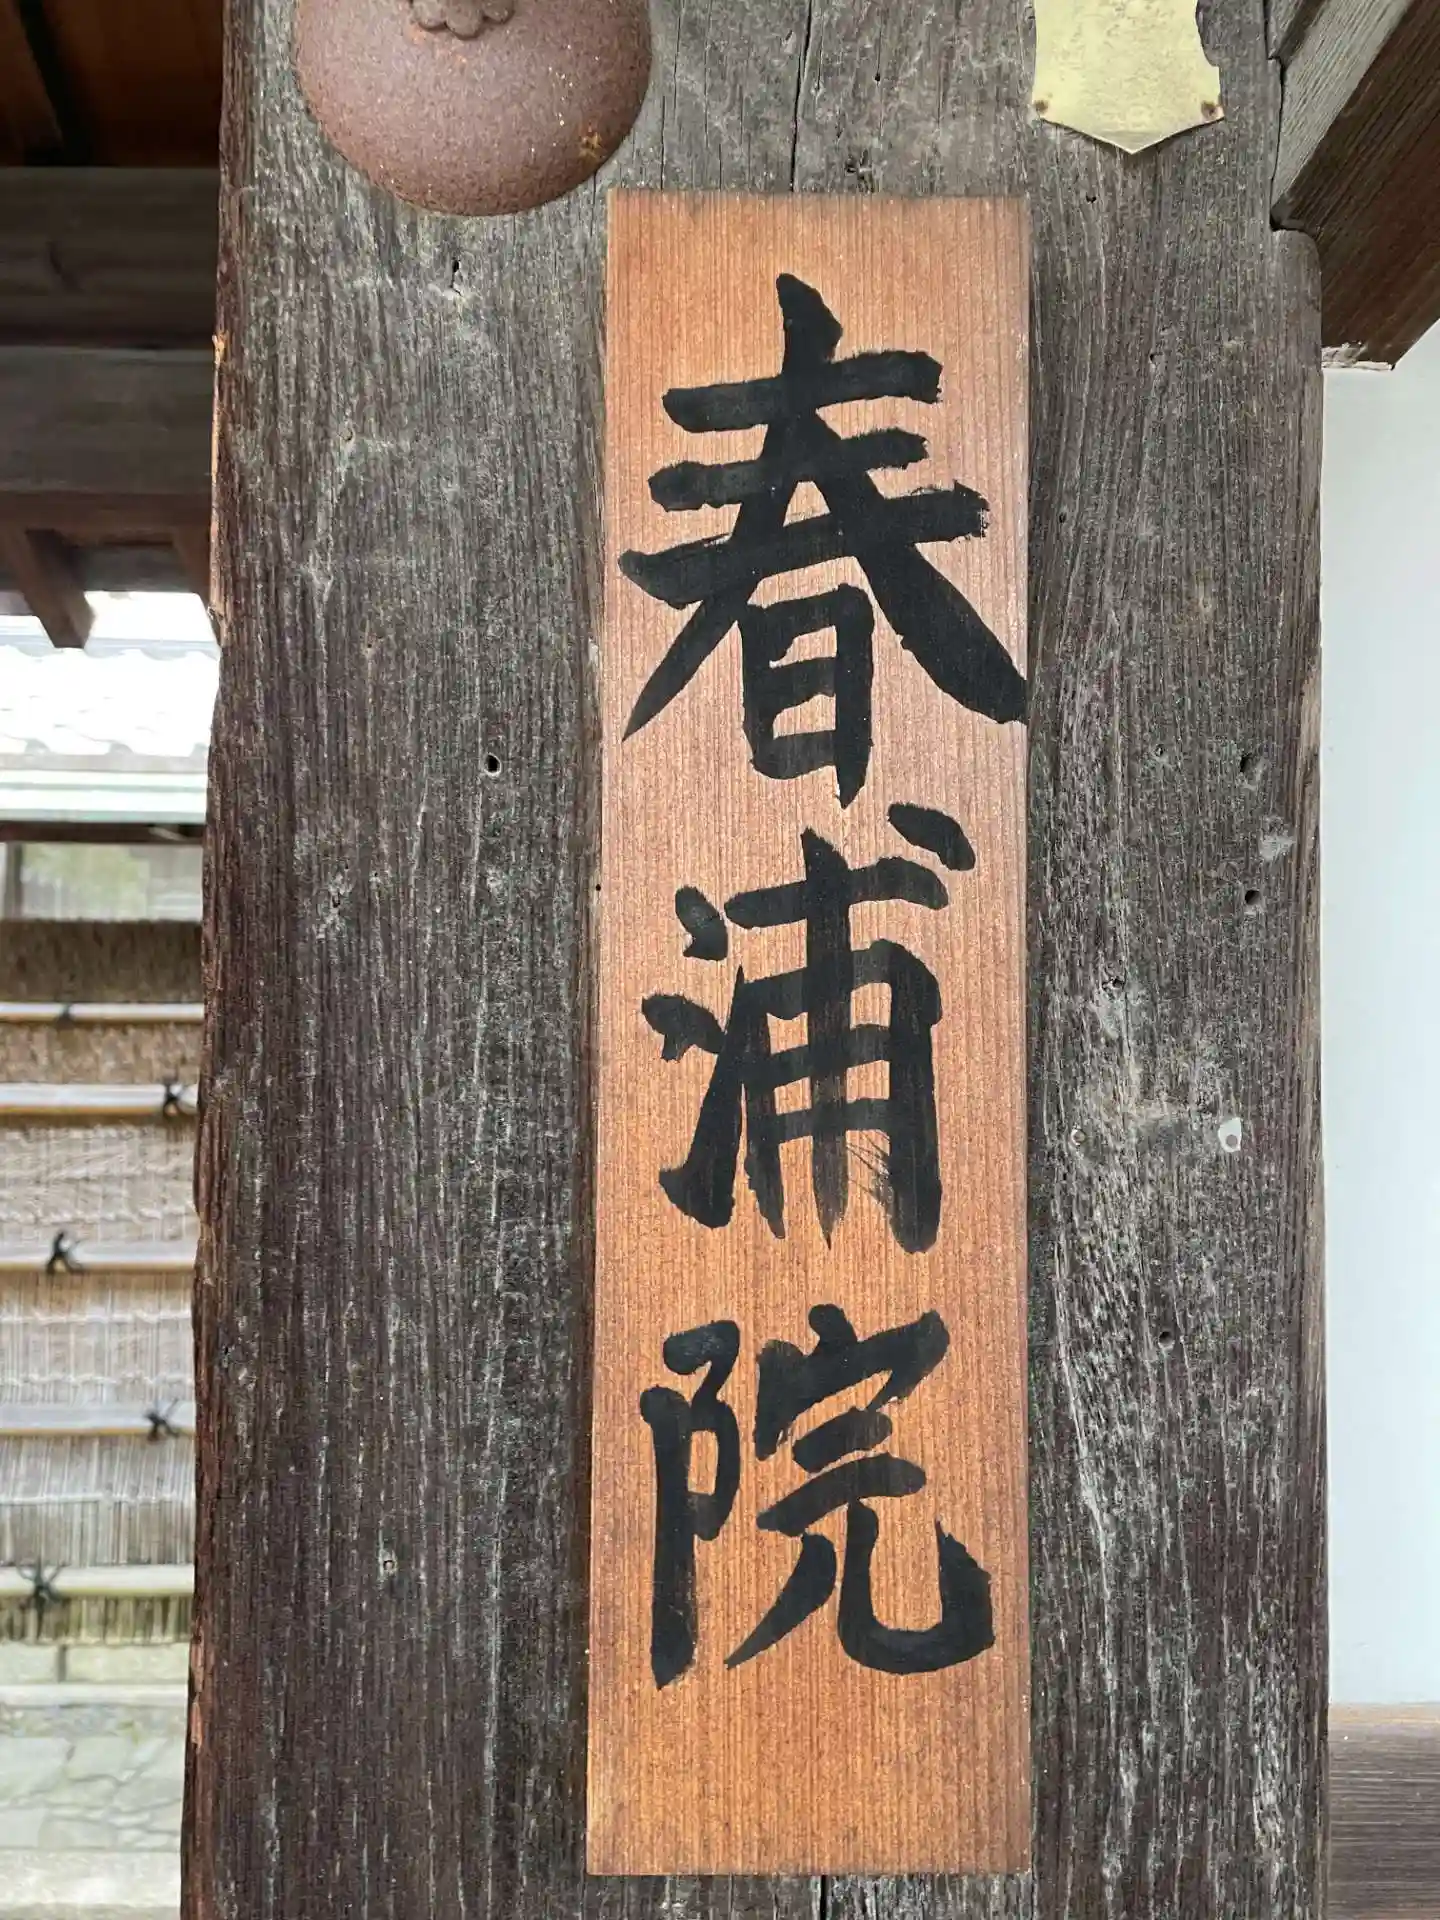 春浦院